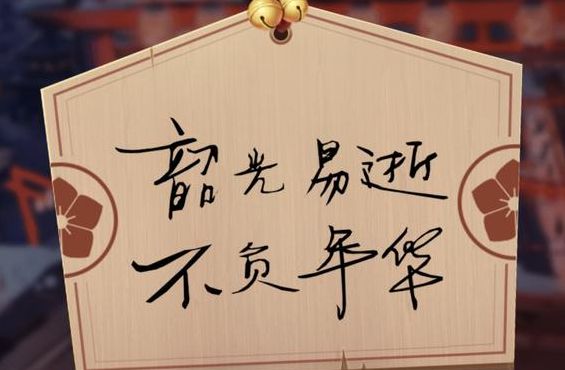 韶光易逝
不负年华